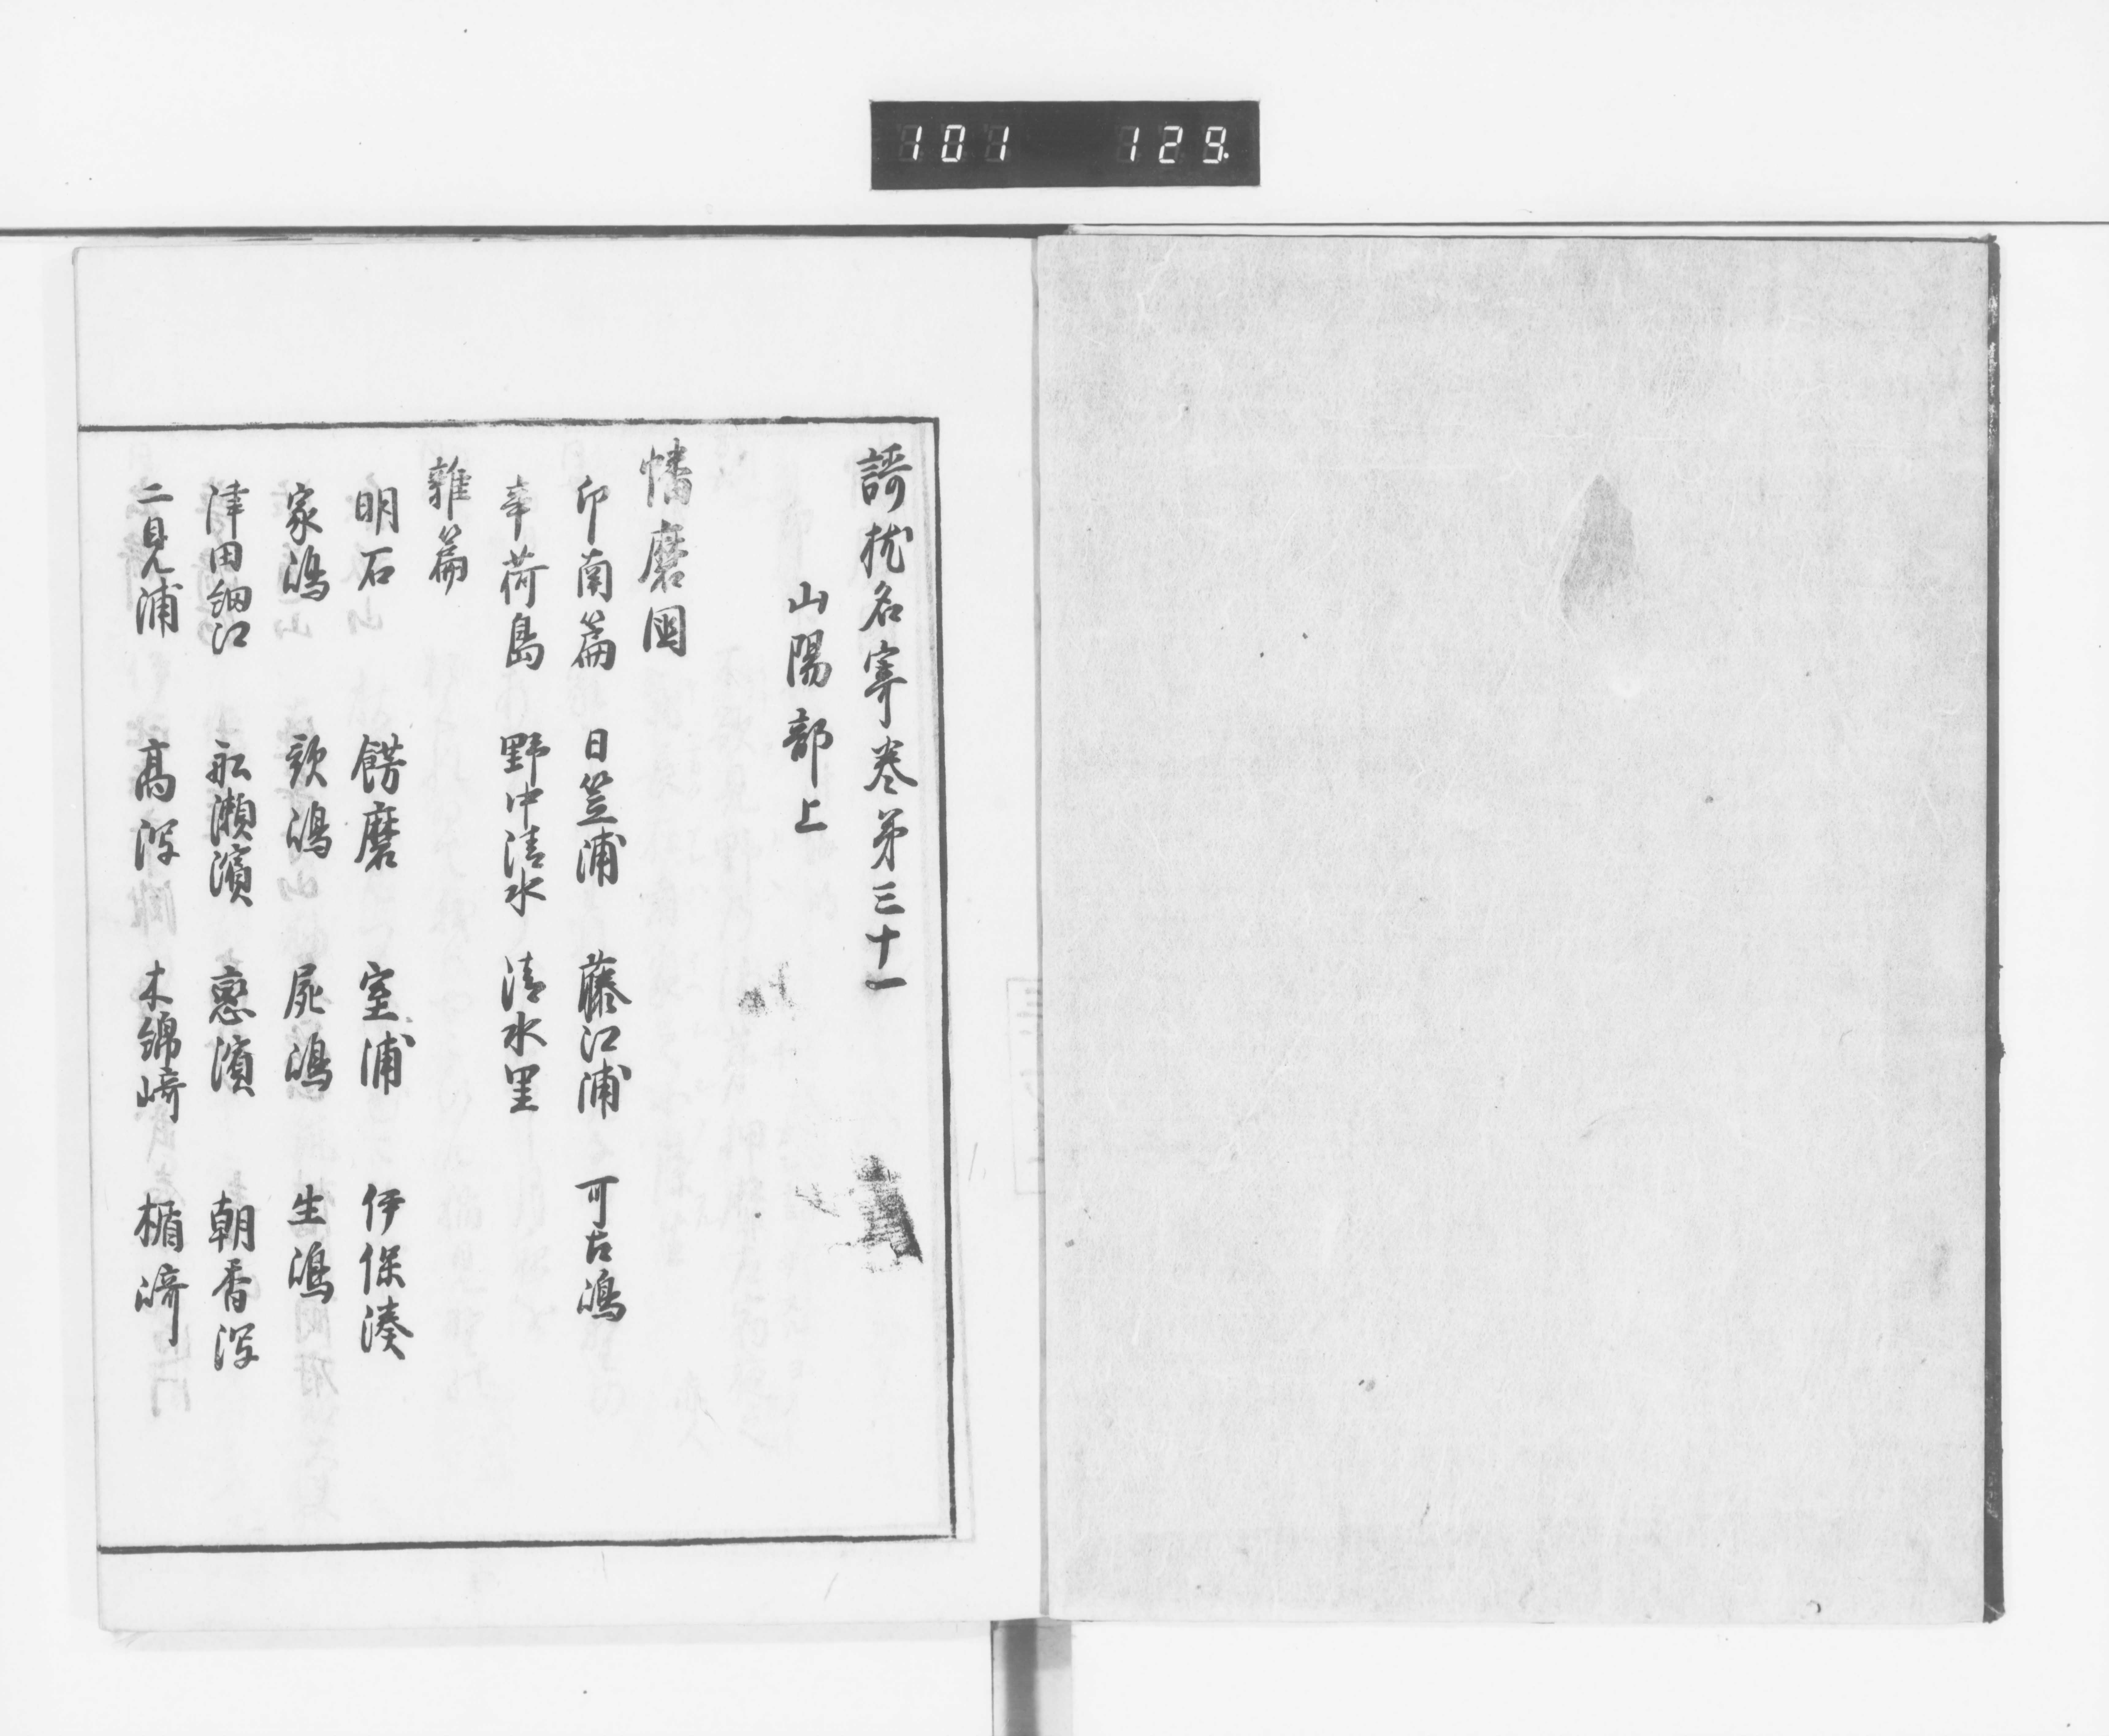 101 129
謌枕名寄巻第三十一
山陽部上
幡磨国
印南篇 日笠浦 藤江浦 可古嶋
辛荷島 野中清水 清水里
雑篇
明石 餝磨 室浦 伊保湊
家嶋 歌嶋 屍嶋 生嶋
津田細江 船瀬濱 恋濱 朝香泻
二見浦 高泻 木綿崎 楯﨑